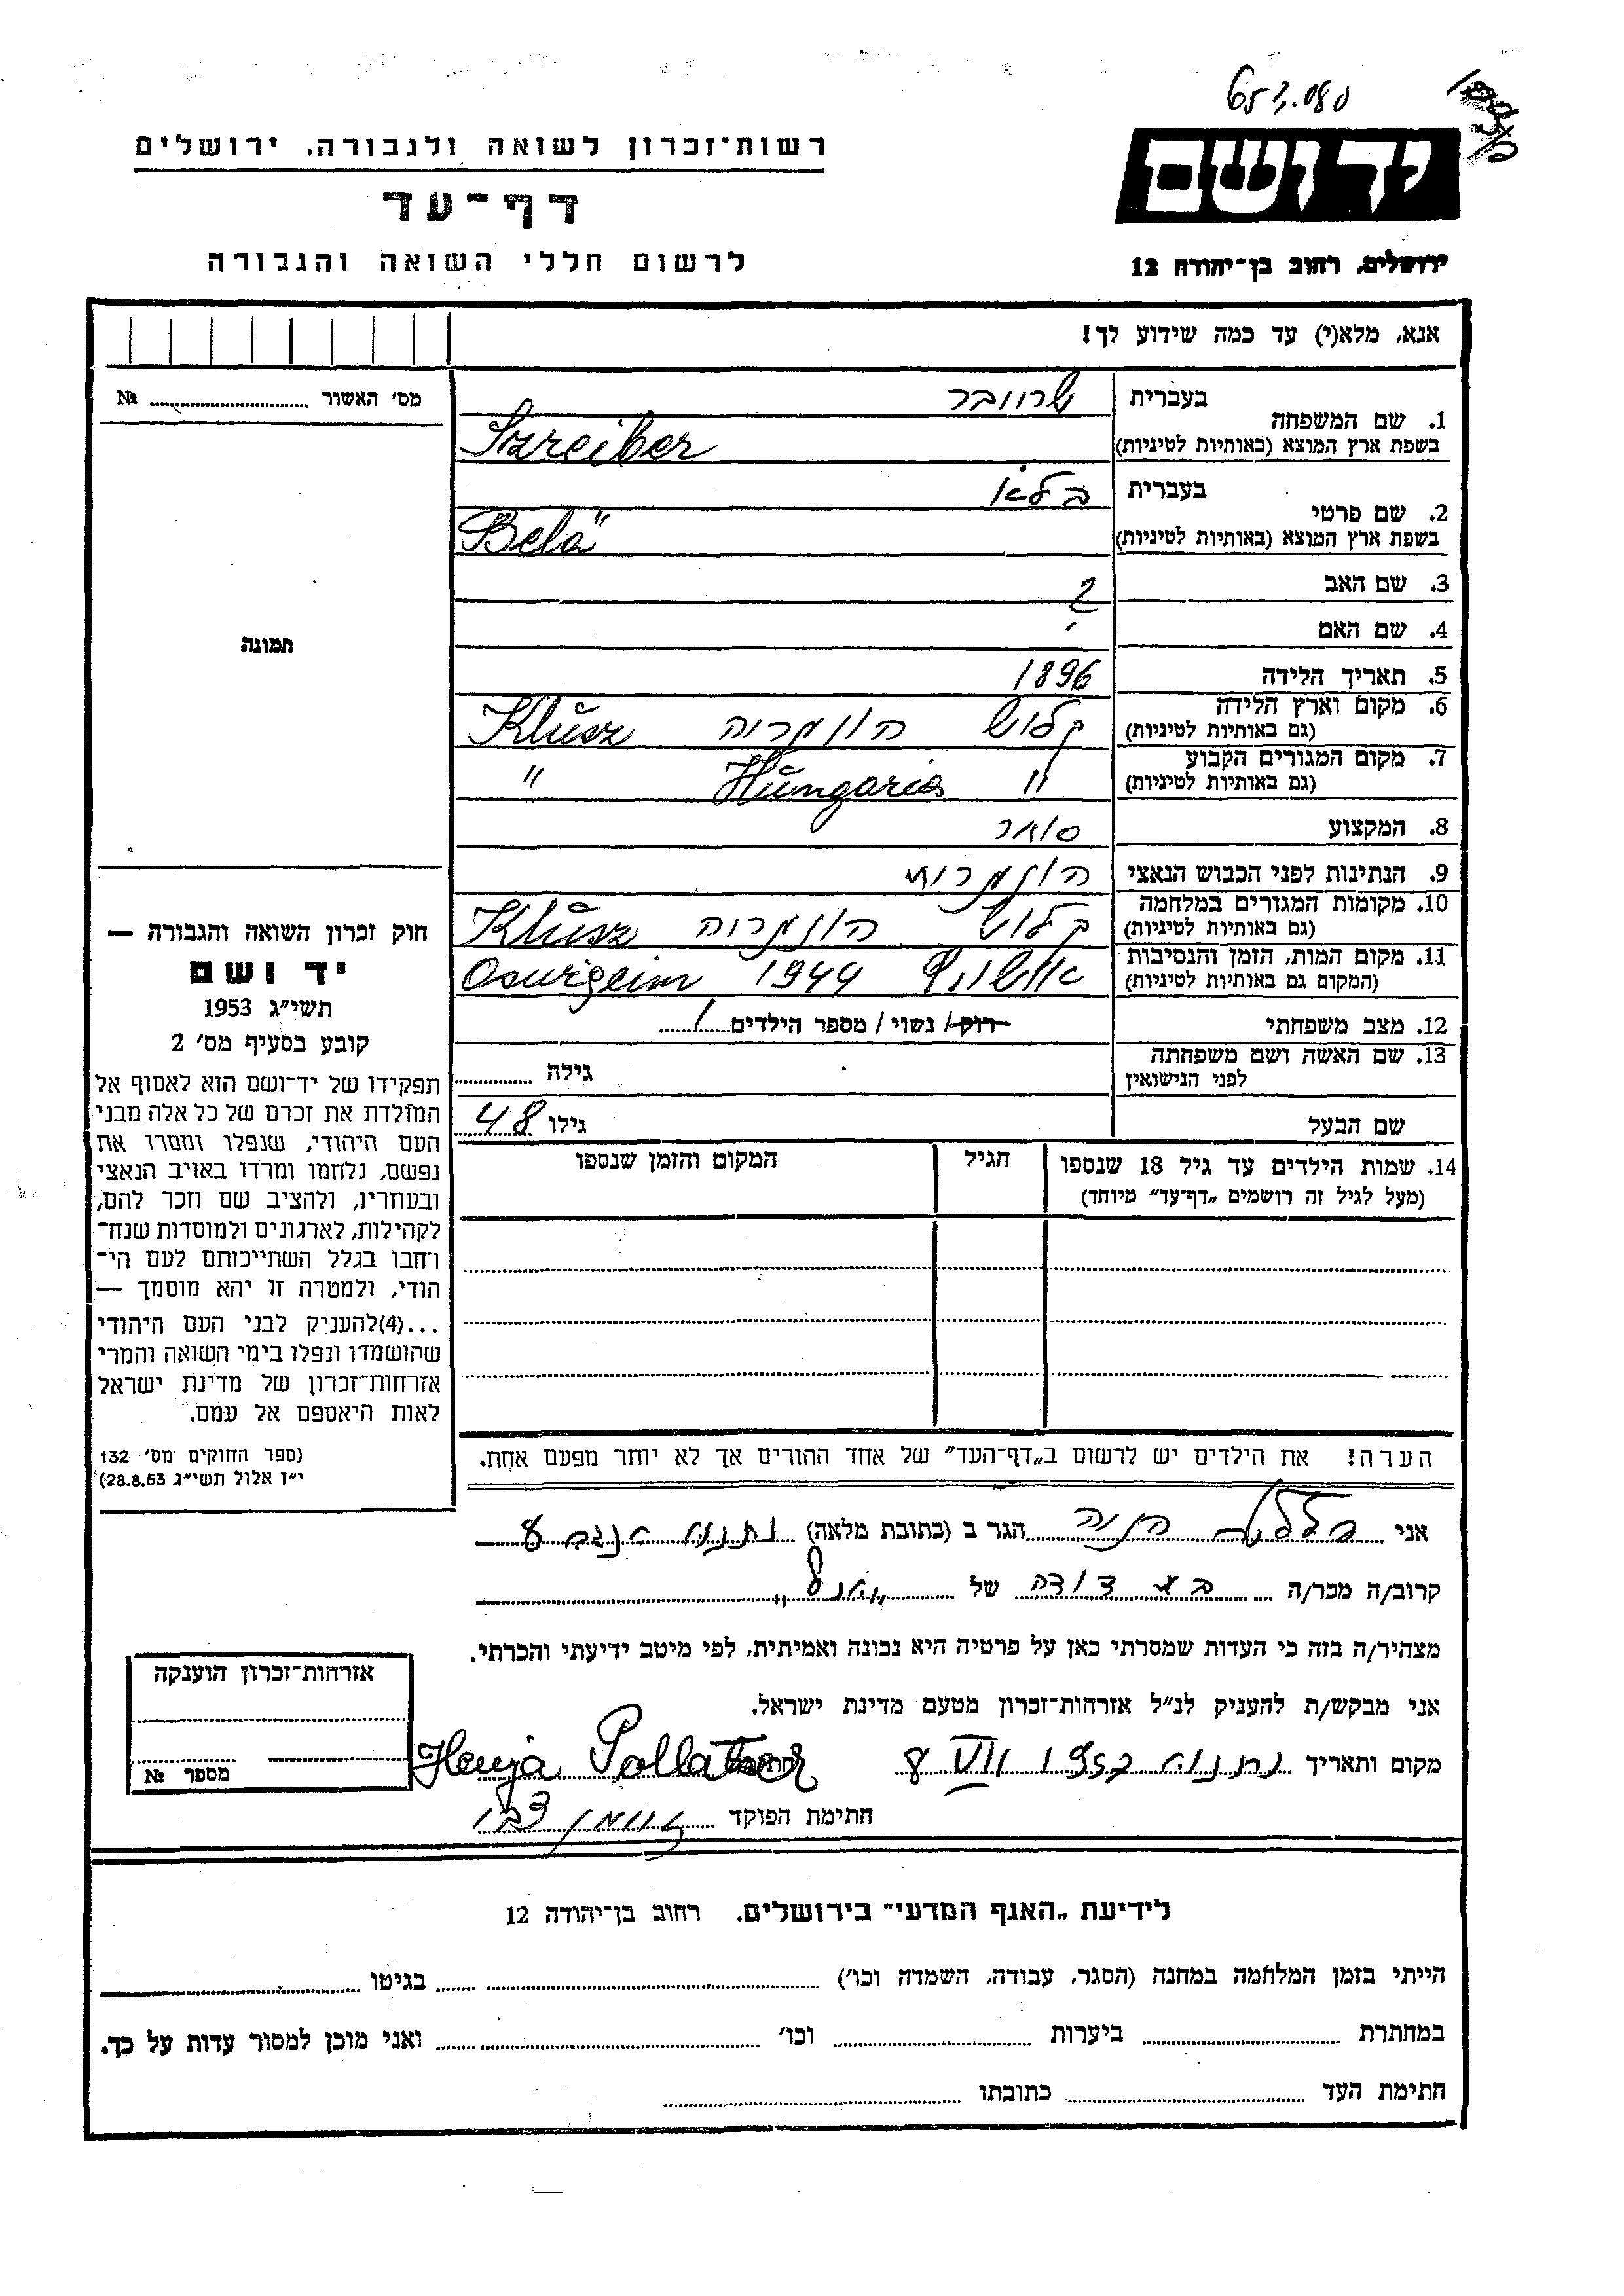 653.080
רשות־זכרון לשואה ולגבורה. ירושלים
דף־עד
לרשום חללי השואה והגבורה
יד ושם
ירושלים, רחוב בן־יהודה 12
אנא, מלא(י) עד כמה שידוע לך!
מס׳ האשור № 
תמונה
חוק זכרון השואה והגבורה —
יד ושם
תשי״ג 1953
קובע בסעיף מס׳ 2
תפקידו של יד־ושם הוא לאסוף אל
המולדת את זכרם של כל אלה מבני
העם היהודי, שנפלו ומסרו את
נפשם, נלחמו ומרדו באויב הנאצי
ובעוזריו, ולהציב שם וזכר להם,
לקהילות, לארגונים ולמוסדות שנח־
רחבו בגלל השתייכותם לעם הי־
הודי, ולמטרה זו יהא מוסמך —
...(4)להעניק לבני העם היהודי
שהושמדו ונפלו בימי השואה והמרי
אזרחות־זכרון של מדינת ישראל
לאות היאספם אל עמם.
(ספר החוקים מס׳ 132
י״ז אלול תשי״ג 28.8.53)
בעברית שרייבר
1. שם המשפחה
בשפת ארץ המוצא (באותיות לטיניות) Szreiber
בעברית
2. שם פרטי
בשפת ארץ המוצא (באותיות לטיניות) Bela
3. שם האב ?
4. שם האם
5. תאריך הלידה 1896
6. מקום וארץ הלידה קלוש הונגריה Klusz
(גם באותיות לטיניות)
7. מקום המגורים הקבוע " Hungaria "
(גם באותיות לטיניות)
8. המקצוע סוחר
9. הנתינות לפני הכבוש הנאצי הונגרית
10. מקומות המגורים במלחמה קלוש הונגריה Klusz
(גם באותיות לטיניות)
11. מקום המות, הזמן והנסיבות 1944
(המקום גם באותיות לטיניות)
12. מצב משפחתי רווק/ נשוי/ מספר הילדים 1
13. שם האשה ושם משפחתה גילה
לפני הנישואין
שם הבעל גילו 48
14. שמות הילדים עד גיל 18 שנספו הגיל המקום והזמן שנספו
(מעל לגיל זה רושמים „דף־עד״ מיוחד)
הערה! את הילדים יש לרשום ב„דף־העד״ של אחד ההורים אך לא יותר מפעם אחת.
אני חנה הגר ב (כתובת מלאה) נתניה
קרוב/ה מכר/ה בת דודה של
מצהיר/ה בזה כי העדות שמסרתי כאן על פרטיה היא נכונה ואמיתית, לפי מיטב ידיעתי והכרתי.
אני מבקש/ת להעניק לנ״ל אזרחות־זכרון מטעם מדינת ישראל.
מקום ותאריך נתניה 8 VII
חתימת הפוקד
אזרחות־זכרון הוענקה
מספר №
לידיעת „האגף המדעי״ בירושלים. רחוב בן־יהודה 12
הייתי בזמן המלחמה במחנה (הסגר, עבודה, השמדה וכו׳) בגיטו
במחתרת ביערות וכו׳ ואני מוכן למסור עדות על כך.
חתימת העד כתובתו